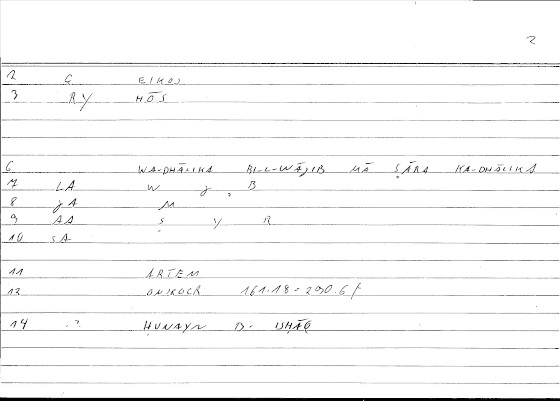 2
2 G EIKOS
3 RY HŌS
6 WA-DHĀLIKA BI-L-WĀJIB MĀ ṢĀRA KA-DHĀLIKA
7 LA W J , B
8 JA M
9 AA Ṣ Y R
10 SA
11 ARTEM
12 ONIROCR 161.18 = 290.6 f
14 .?. ḤUNAYN B. ISḤĀQ